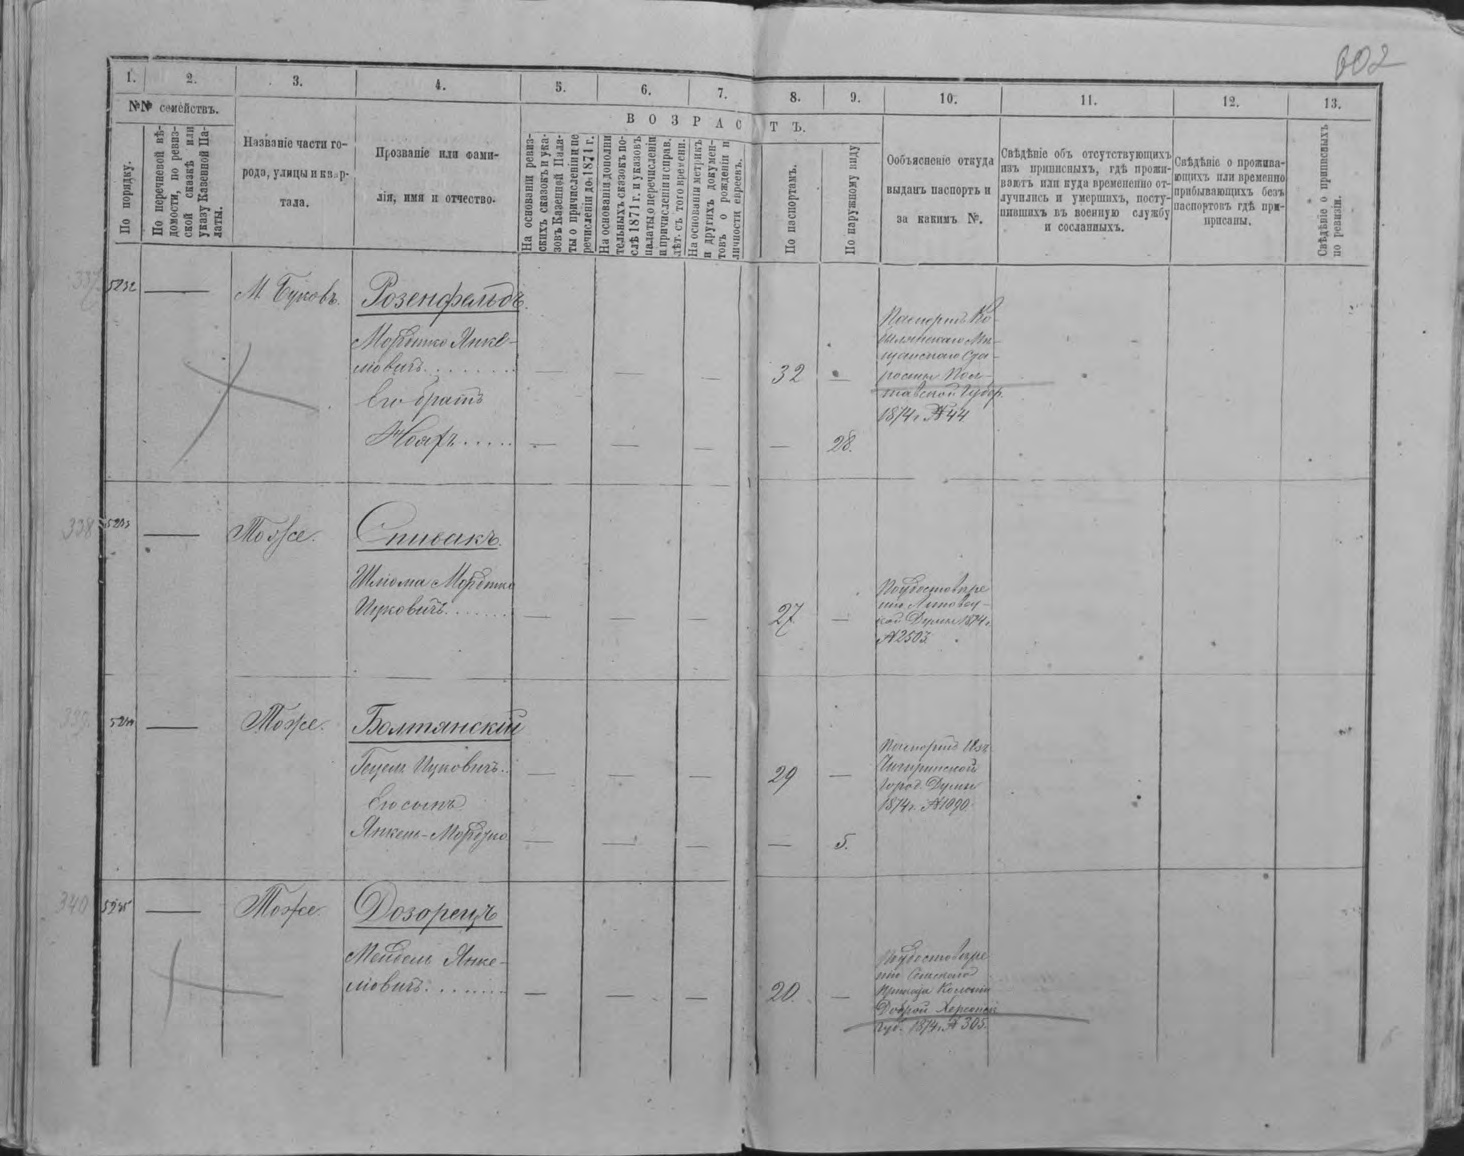 602
1.
2.
3.
4.
5.
6.
7.
8.
9.
10.
11.
12.
13.
№№ семействъ.
По порядку.
По перечневой вѣ-
домости, по ревиз-
ской сказкѣ или
указу Казенной Па-
латы.
Названіе части го-
рода, улицы и квар-
тала.
Прозваніе или фами-
лія, имя и отчество.
ВОЗРАСТЪ.
На основаніи ревиз-
скихъ сказокъ и ука-
зовъ Казенной Пала-
ты о причисленіи и пе
речисленіи до 1871 г.
На основаніи дополни
тельныхъ сказокъ по-
слѣ 1871 г. и указовъ
палаты, о перечисленіи
и причисленіи и справ.
лѣт. съ того времени.
На основаніи метрикъ
и другихъ докумен-
товъ о рожденіи и
личности евреевъ.
По паспортамъ.
По наружному виду
Ообъясненіе откуда
выданъ паспортъ и
за какимъ №.
Свѣдѣніе объ отсутствующихъ
изъ приписныхъ, гдѣ прожи-
ваютъ или куда временно от-
лучились и умершихъ, посту-
пившихъ въ военную службу
и сосланныхъ.
Свѣдѣніе о прожива-
ющихъ или временно
прибывающихъ безъ
паспортовъ гдѣ при-
приписаны.
Свѣдѣніе о приписныхъ
по ревизіи.
337
5232
М. Буковъ.
Розенфельдъ.
Мордко Янке-
левичъ
32
Паспортъ Ко-
Мѣ-
щанскаго Ста-
росты Пол-
тавской Губер.
1874 г. № 44
Его братъ
28.
338
5233
Тоже.
Спивакъ.
Шлiома Мордко
Ицковичъ
27
По удостовѣре
нію Липовец-
кой Думы 1874 г.
№ 2503.
339.
5234
Тоже.
Балтянскій
Гецель Ицковичъ.
29
Паспортъ Изъ
Чигиринской
Город. Думы
1874 г. № 1090.
Его сынъ
Янкель-Мордко
5.
340
5235
Тоже.
Дозорецъ
Мендель Янке-
левичъ
20.
По удостовѣре
нію Сельскаго
Приказа Колоніи
Доброй Херсонск.
Губ. 1874 г. № 305.